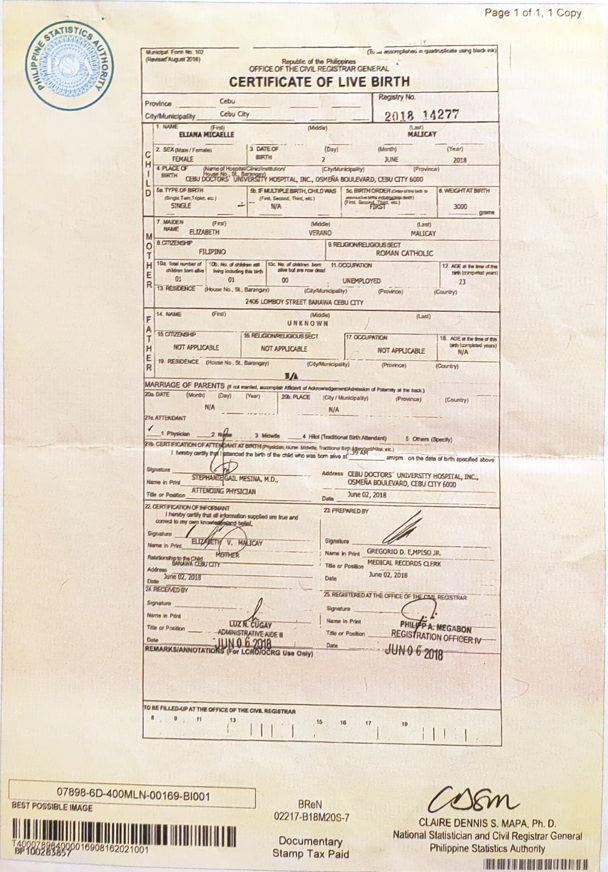 Page 1 of 1, 1 Copy
PHILIPPINE STATISTICS AUTHORITY
Municipal Form No. 102
(Revised August 2016)
(To be accomplished in quadruplicate using black ink)
Republic of the Philippines
OFFICE OF THE CIVIL REGISTRAR GENERAL
CERTIFICATE OF LIVE BIRTH
Province Cebu
Registry No.
City/Municipality Cebu City
2018 14277
CHILD
1. NAME (First) (Middle) (Last)
ELIANA MICAELLE MALICAY
2. SEX (Male / Female) 3. DATE OF BIRTH (Day) (Month) (Year)
FEMALE 2 JUNE 2018
4. PLACE OF BIRTH (Name of Hospital/Clinic/Institution/ House No., St., Barangay) (City/Municipality) (Province)
CEBU DOCTORS' UNIVERSITY HOSPITAL, INC., OSMEÑA BOULEVARD, CEBU CITY 6000
5a. TYPE OF BIRTH (Single, Twin, Triplet, etc.) 5b. IF MULTIPLE BIRTH, CHILD WAS (First, Second, Third, etc.) 5c. BIRTH ORDER (First, Second, Third, etc.) 6. WEIGHT AT BIRTH
SINGLE N/A FIRST 3000 grams
MOTHER
7. MAIDEN NAME (First) (Middle) (Last)
ELIZABETH VERANO MALICAY
8. CITIZENSHIP 9. RELIGION/RELIGIOUS SECT
FILIPINO ROMAN CATHOLIC
10a. Total number of children born alive 10b. No. of children still living including this birth 10c. No. of children born alive but are now dead 11. OCCUPATION 12. AGE at the time of this birth (completed years)
01 01 00 UNEMPLOYED 23
13. RESIDENCE (House No., St., Barangay) (City/Municipality) (Province) (Country)
2406 LOMBOY STREET BANAWA CEBU CITY
FATHER
14. NAME (First) (Middle) (Last)
UNKNOWN
15. CITIZENSHIP 16. RELIGION/RELIGIOUS SECT 17. OCCUPATION 18. AGE at the time of this birth (completed years)
NOT APPLICABLE NOT APPLICABLE NOT APPLICABLE N/A
19. RESIDENCE (House No., St., Barangay) (City/Municipality) (Province) (Country)
N/A
MARRIAGE OF PARENTS (If not married, accomplish Affidavit of Acknowledgement/Admission of Paternity at the back.)
20a. DATE (Month) (Day) (Year) 20b. PLACE (City / Municipality) (Province) (Country)
N/A N/A
21a. ATTENDANT
1 Physician 2 Nurse 3 Midwife 4 Hilot (Traditional Birth Attendant) 5 Others (Specify)
21b. CERTIFICATION OF ATTENDANT AT BIRTH (Physician, Nurse, Midwife, Traditional Birth Attendant/Hilot, etc.)
I hereby certify that I attended the birth of the child who was born alive at am/pm on the date of birth specified above.
Signature
Address CEBU DOCTORS' UNIVERSITY HOSPITAL, INC.,
Name in Print STEPHANIE GAIL MESINA, M.D.,
OSMEÑA BOULEVARD, CEBU CITY 6000
Title or Position ATTENDING PHYSICIAN
Date June 02, 2018
22. CERTIFICATION OF INFORMANT
I hereby certify that all information supplied are true and
correct to my own knowledge and belief.
Signature
Name in Print ELIZABETH V. MALICAY
Relationship to the Child MOTHER
Address BANAWA CEBU CITY
Date June 02, 2018
23. PREPARED BY
Signature
Name in Print GREGORIO D. EMPISO JR.
Title or Position MEDICAL RECORDS CLERK
Date June 02, 2018
24. RECEIVED BY
Signature
Name in Print LUZ N. CUGAY
Title or Position ADMINISTRATIVE AIDE III
Date JUN 06 2018
25. REGISTERED AT THE OFFICE OF THE CIVIL REGISTRAR
Signature
Name in Print PHILIPP A. MEGABON
Title or Position REGISTRATION OFFICER IV
Date JUN 06 2018
REMARKS/ANNOTATIONS (For LCRO/OCRG Use Only)
TO BE FILLED-UP AT THE OFFICE OF THE CIVIL REGISTRAR
8 9 11 13 15 16 17 18
07898-6D-400MLN-00169-BI001
BEST POSSIBLE IMAGE
BReN
02217-B18M20S-7
T400078984000016908162021001
BP100283857
Documentary
Stamp Tax Paid
CLAIRE DENNIS S. MAPA, Ph. D.
National Statistician and Civil Registrar General
Philippine Statistics Authority